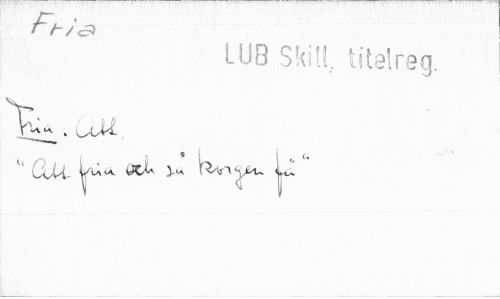 Fria
LUB Skill, titelreg.
Fria. Att.
"Att fria och så korgen få"